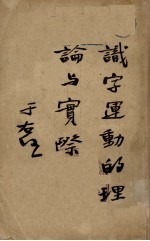 識字運動的理
論与實際
于右任